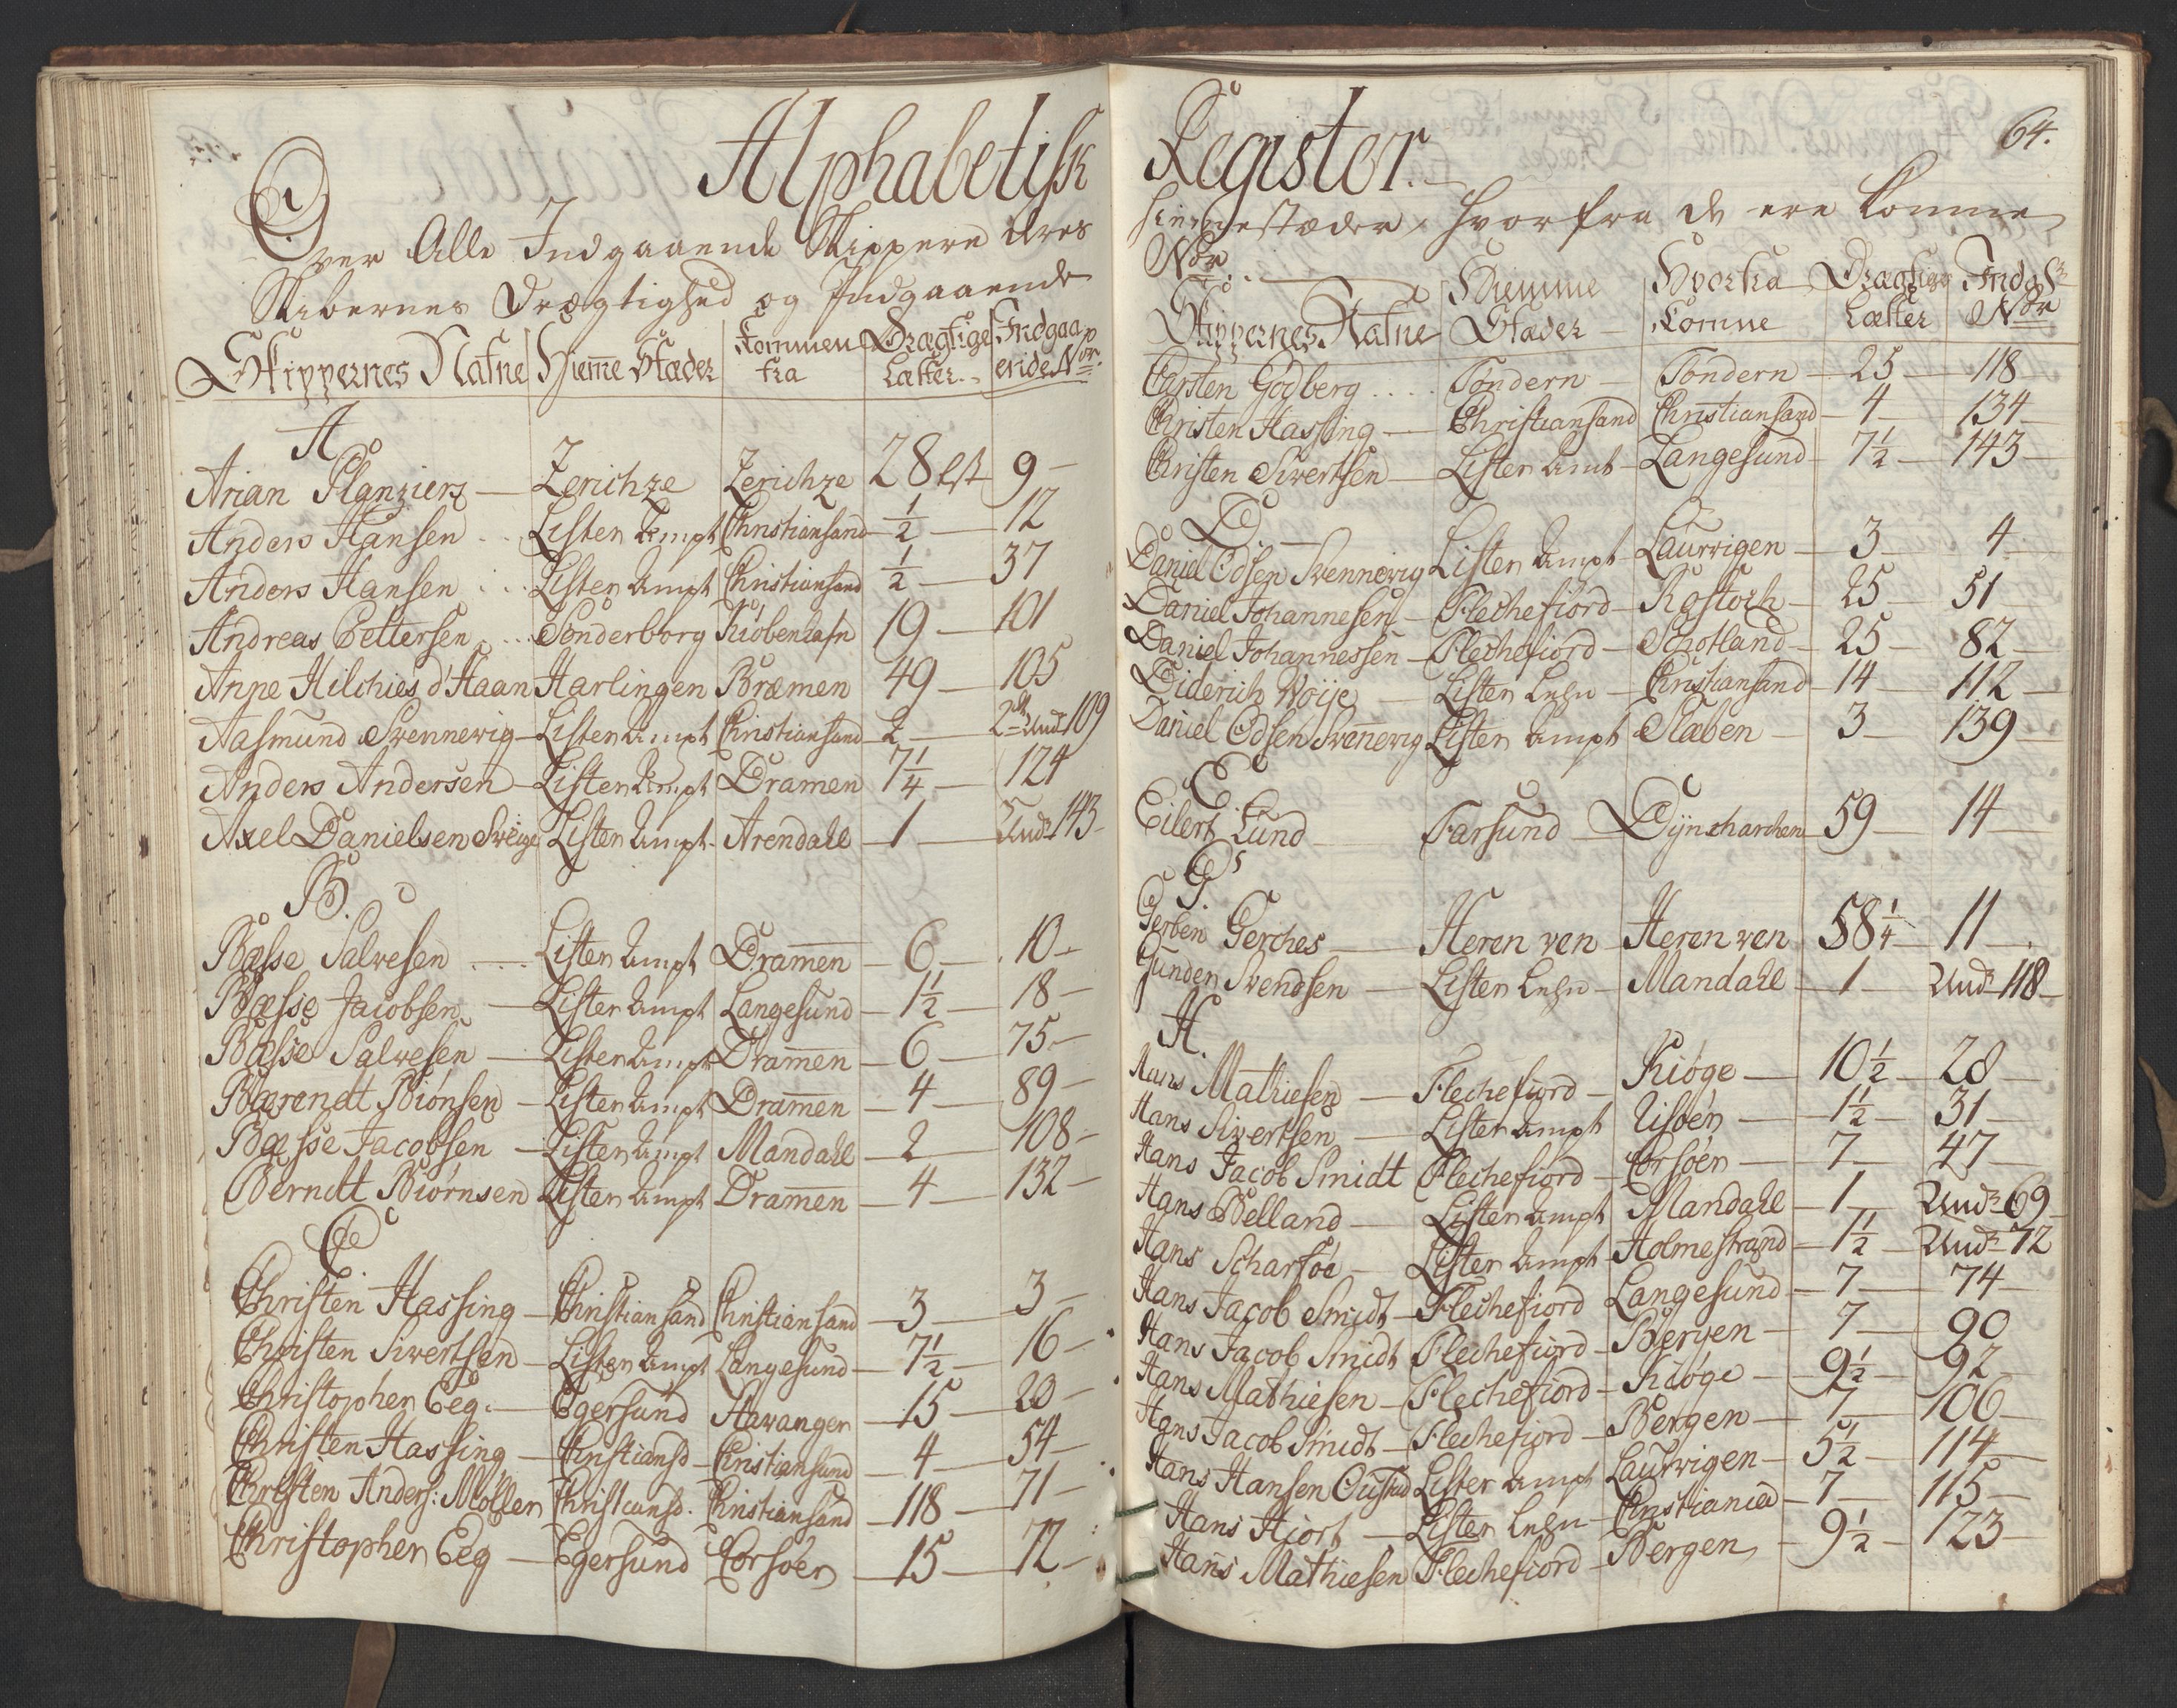 Alphabetisk
Over Alle Indgaaende Skippere deres
Skibernes Drægtighed og Indgaaende
Skippernes Nafne Hjem̄e Stæder Kommen fra Drægtige Læster Indgaaende No̱r.
A
Arian Planziers — Zerichze Zerichze 28 lst 9 —
Anders Hansen .. Lister Ampt Christiansand ½ — 12
Anders Hansen .. Lister Ampt Christiansand ½ — 37
Andreas Pettersen .. Sönderborg Kiöbenhafn 19 — 101
Anne Hilchies d'Haan Harlingen Bræmen 49 — 105
Aasmund Svennevig — Lister Ampt Christiansand 2 — 109
Anders Andersen — Lister Ampt Dramen 7¼ — 124
Axel Danielsen Sveige Lister Ampt Arendahl — 1 — Und 143 —
B.
Basse Salvesen .... Lister Ampt Dram̄en — 6 — 10 —
Bæsse Jacobsen — Lister Ampt Langesund — 1½ — 18 —
Basse Salvesen — Lister Ampt Dram̄en — 6 — 75 —
Barendt Biönsen — Lister Ampt Dram̄en — 4 — 89 —
Bæsse Jacobsen — Lister Ampt Mandahl — 2 — 108 —
Berndt Biörnsen Lister Ampt Dram̄en — 4 — 132 —
C.
Christen Hassing — Christiansand Christiansand — 3 — 3 —
Christen Sivertsen — Lister Ampt Langesund — 7½ — 16 —
Christopher Eeg. — Egersund Stavanger — 15 — 20 —
Christen Hassing — Christiansd — Christiansand — 4 — 54 —
Christen Anders: Möller Christiansd. Christiansand — 118 — 71 —
Christopher Eeg — Egersund Corsöer — 15 — 72 —
64.
Register. —
Hiemmestæder, hvorfra de ere komne
No̱r.
Skippernes Nafne Hiemme Stæder — Hvorfra Komne Drægtige Læster Indg No̱r
Carsten Godberg .... Töndern — Töndern — 25 — 118 —
Christen Hassing — Christiansand Christiansand — 4 — 134 —
Christen Sivertsen — Lister Amt — Langesund — 7½ — 143 —
D.
Daniel Edsen Svennevig Lister Ampt Laurvigen — 3 — 4 —
Daniel Johannesen — Flechefiord — Rostoch — 25 — 51
Daniel Johannessen — Flechefiord — Schotland — 25 — 82 —
Diderich Woije — Lister Lehn — Christiansand — 14 — 112 —
Daniel Edsen Sven̄evig Lister Ampt Staben — 3 — 139 —
E.
Eilert Lund — Farsund — Dÿncharchen 59 — 14 —
G.
Gerben Gerches — Heren ven Heren ven 58¼ — 11 —
Gunder Svendsen — Lister Lehn — Mandahl — 1 — Und 118 —
H.
Hans Mathiesen — Flechefiord — Kiöge — 10½ — 28 —
Hans Sivertsen — Lister Ampt Risöer — 1½ — 31 —
Hans Jacob Smidt Flechefiord — Corsöer — 7 — 47 —
Hans Belland — Lister Ampt Mandahl — 1 — Und 69 —
Hans Scharsöe — Lister Ampt Holmestrand — 1½ — Und 72
Hans Jacob Smidt — Flechefiord Langesund — 7 — 74 —
Hans Jacob Smidt Flechefiord — Bergen — 7 — 90
Hans Mathiesen — Flechefiord — Kiöge — 9½ — 92 —
Hans Jacob Smidt — Flechefiord — Bergen — 7 — 106 —
Hans Hansen Lister Ampt Laurvigen — 5½ — 114 —
Hans Hiort — Lister Lehn — Christiania — 7 — 115 —
Hans Mathiesen Flechefiord — Bergen — 9½ — 123 —